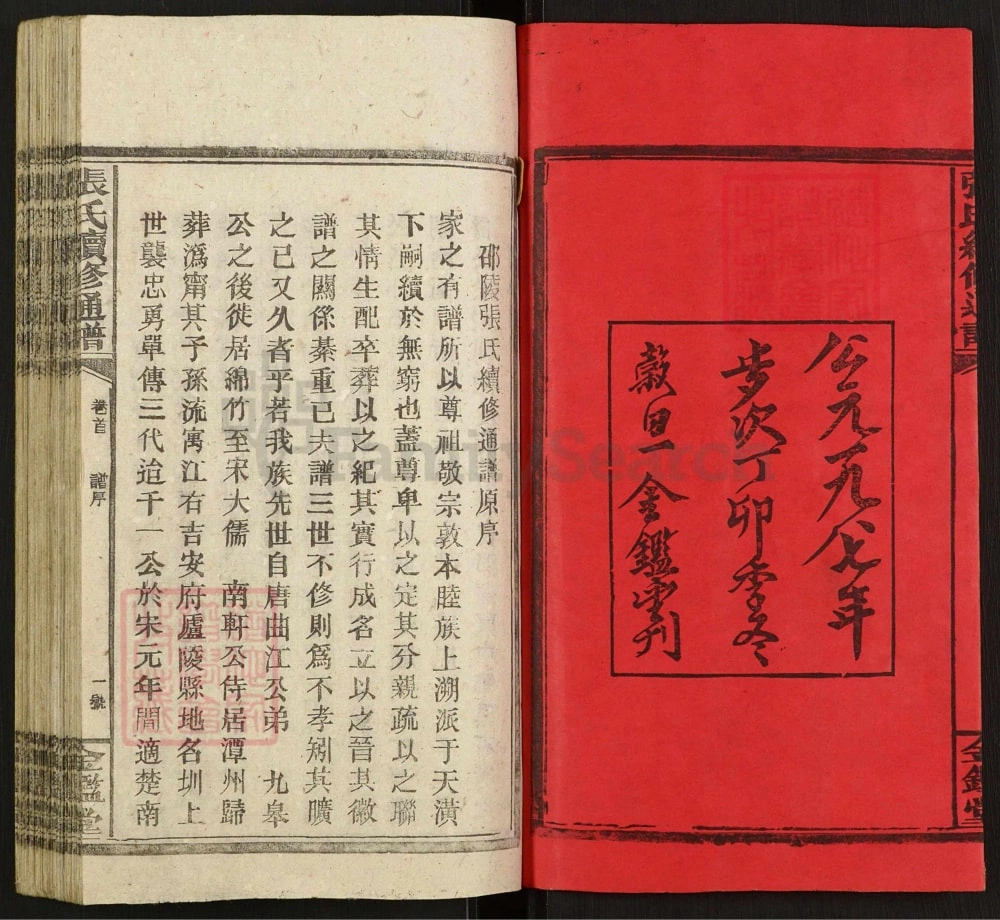 公元一九八七年
步次丁卯季冬
穀旦 金鑑堂刊
金鑑堂
邵陵張氏續修通譜原序
家之有譜所以尊祖敬宗敦本睦族上溯派于天潢
下嗣續於無窮也蓋尊卑以之定其分親疏以之聯
其情生配卒葬以之紀其實行成名立以之晉其徽
譜之關係綦重已夫譜三世不修則為不孝矧其曠
之已又久者乎若我族先世自唐曲江公弟 九皋
公之後徙居綿竹至宋大儒 南軒公侍居潭州歸
葬溈甯其子孫流寓江右吉安府廬陵縣地名圳上
世襲忠勇單傳三代迨千一公於宋元年間適楚南
張氏續修通譜
卷首
譜序
一號
金鑑堂
FamilySearch